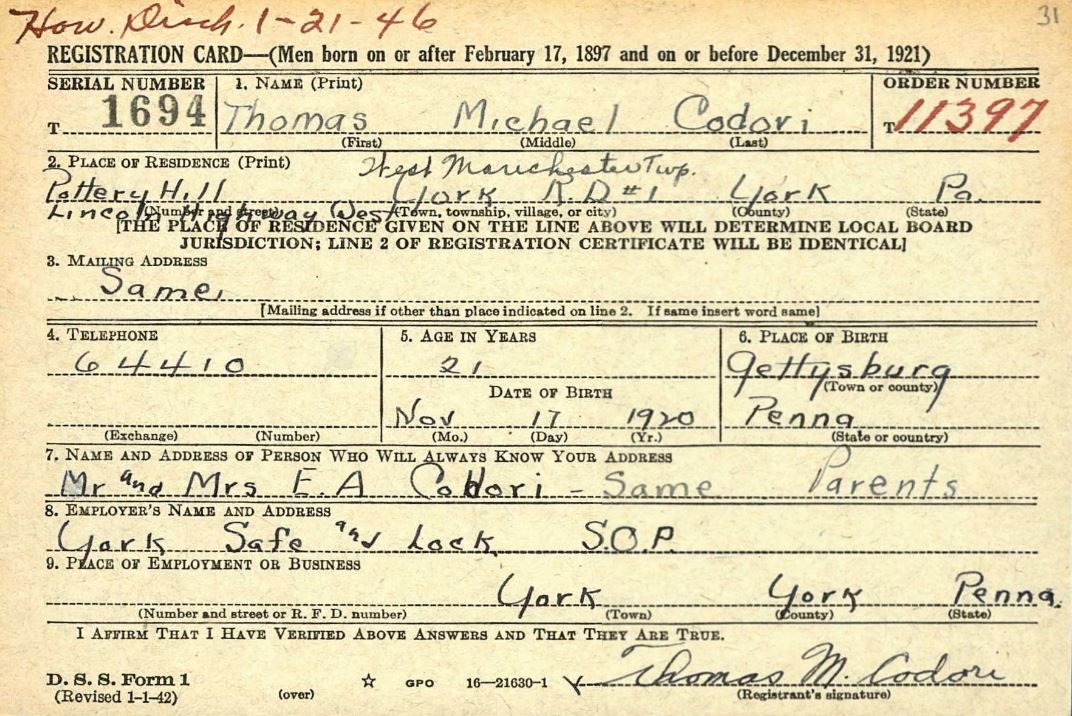 How. Disch. 1-21-46
31
REGISTRATION CARD—(Men born on or after February 17, 1897 and on or before December 31, 1921)
SERIAL NUMBER 1. NAME (Print) ORDER NUMBER
T 1694 Thomas Michael Codori T 11397
(First) (Middle) (Last)
2. PLACE OF RESIDENCE (Print) West Manchester Twp.
Pottery Hill York R.D #1 York Pa.
Lincoln Highway West
(Number and street) (Town, township, village, or city) (County) (State)
[THE PLACE OF RESIDENCE GIVEN ON THE LINE ABOVE WILL DETERMINE LOCAL BOARD
JURISDICTION; LINE 2 OF REGISTRATION CERTIFICATE WILL BE IDENTICAL]
3. MAILING ADDRESS
Same
[Mailing address if other than place indicated on line 2. If same insert word same]
4. TELEPHONE 5. AGE IN YEARS 6. PLACE OF BIRTH
64410 21 Gettysburg
(Town or county)
DATE OF BIRTH
Nov 17 1920 Penna
(Exchange) (Number) (Mo.) (Day) (Yr.) (State or country)
7. NAME AND ADDRESS OF PERSON WHO WILL ALWAYS KNOW YOUR ADDRESS
Mr and Mrs E. A Codori - Same Parents
8. EMPLOYER'S NAME AND ADDRESS
York Safe and Lock S.O.P.
9. PLACE OF EMPLOYMENT OR BUSINESS
York York Penna.
(Number and street or R. F. D. number) (Town) (County) (State)
I AFFIRM THAT I HAVE VERIFIED ABOVE ANSWERS AND THAT THEY ARE TRUE.
Thomas M. Codori
D. S. S. Form 1
(Revised 1-1-42) (over) ☆ GPO 16—21630-1 (Registrant's signature)